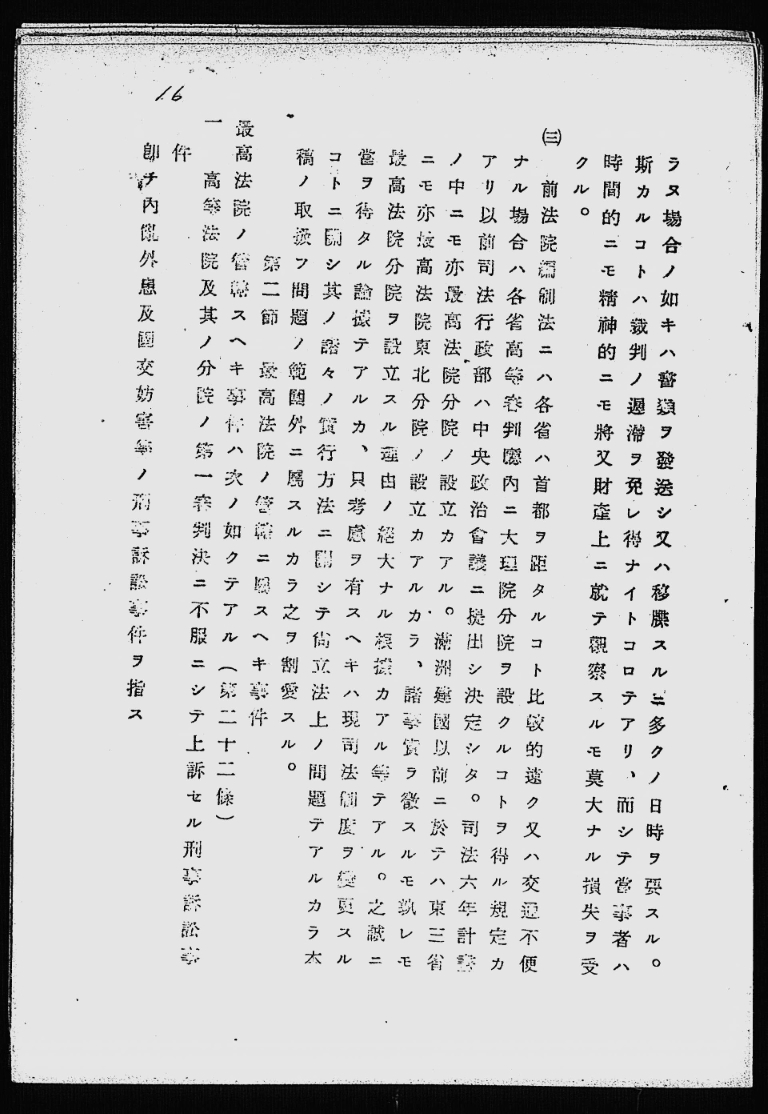 16
ラヌ場合ノ如キハ書類ヲ發送シ又ハ移牒スルニ多クノ日時ヲ要スル。
斯カルコトハ裁判ノ遲滯ヲ免レ得ナイトコロテアリ、而シテ當事者ハ
時間的ニモ精神的ニモ將又財產上ニ就テ觀察スルモ莫大ナル損失ヲ受
クル。
㈢ 前法院編制法ニハ各省ハ首都ヲ距タルコト比較的遠ク又ハ交通不便
ナル場合ハ各省高等審判廳內ニ大理院分院ヲ設クルコトヲ得ル規定カ
アリ以前司法行政部ハ中央政治會議ニ提出シ決定シタ。司法六年計畫
ノ中ニモ亦最高法院分院ノ設立カアル。滿洲建國以前ニ於テハ東三省
ニモ亦最高法院東北分院ノ設立カアルカラ、諸事實ヲ徵スルモ孰レモ
最高法院分院ヲ設立スル理由ノ絕大ナル根據カアル等テアル。之誠ニ
當ヲ得タル論據テアルカ、只考慮ヲ有スヘキハ現司法制度ヲ變更スル
コトニ關シ其ノ諸々ノ實行方法ニ關シテ尙立法上ノ問題テアルカラ本
稿ノ取扱フ問題ノ範圍外ニ屬スルカラ之ヲ割愛スル。
第二節 最高法院ノ管轄ニ屬スヘキ事件
最高法院ノ管轄スヘキ事件ハ次ノ如クテアル(第二十二條)
一 高等法院及其ノ分院ノ第一審判決ニ不服ニシテ上訴セル刑事訴訟事
件
卽チ內亂外患及國交妨害等ノ刑事訴訟事件ヲ指ス